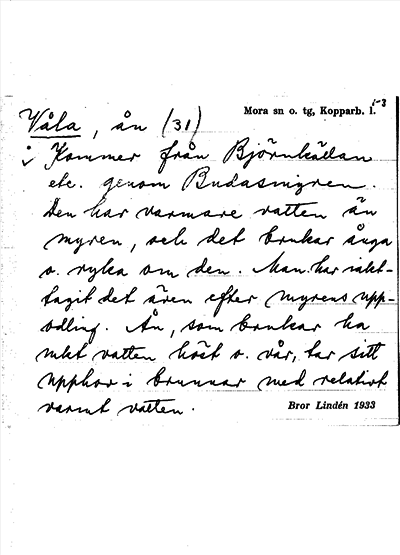 i-3
Mora sn o. tg, Kopparb. l.
Våla, ån (31)
Kommer från Björnkädan
etc. genom Budasmyren.
Den har varmare vatten än
myren, och det brukar ånga
o. ryka om den. Man har iakt-
tagit det även efter myrens upp-
odling. Ån, som brukar ha
mkt vatten höst o. vår, tar sitt
upphov i brunnar med relativt
varmt vatten.
Bror Lindén 1933